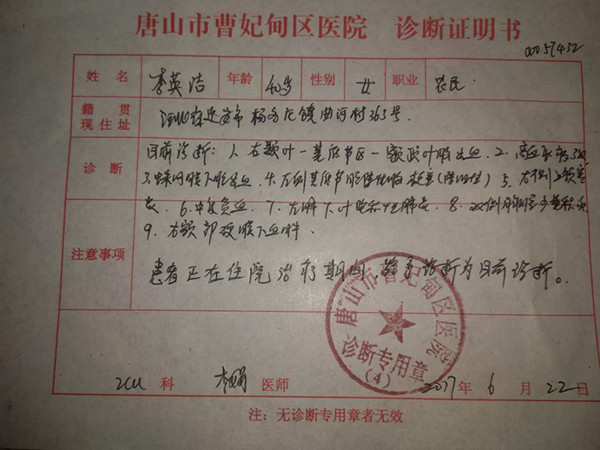 唐山市曹妃甸区医院 诊断证明书
00057432
姓名 李英洁 年龄 40岁 性别 女 职业 农民
籍贯 现住址 河北省迁安市杨各庄镇曲河村365号
诊断 目前诊断:1、右颞叶—基底节区—额顶叶脑出血 2.高血压病3级
3.蛛网膜下腔出血 4.左侧基底节 5、右侧上颌窦
炎 6.中度贫血 7.左肺下叶 肺炎 8.双侧胸腔少量积液
9.右额部硬膜下血肿
注意事项
患者正在住院治疗期间,诊断为目前诊断。
唐山市曹妃甸区医院
诊断专用章
(4)
科 医师 2017年6月22日
注:无诊断专用章者无效